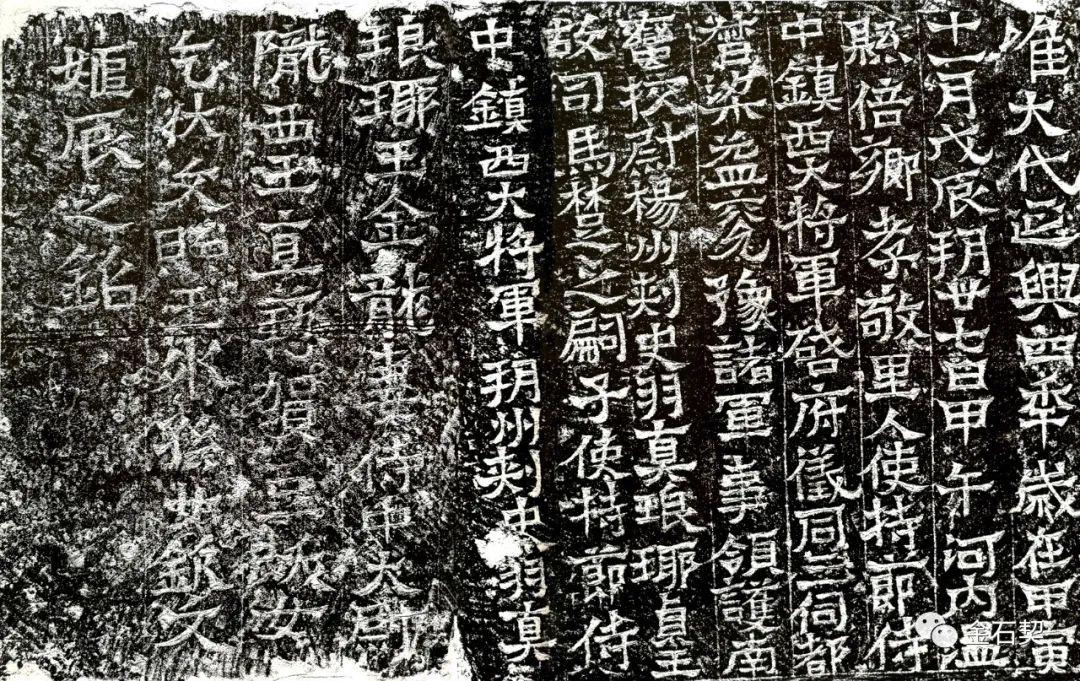 惟大代延興四年歲在甲寅
十一月戊辰朔廿七日甲午河内温
縣倍鄉孝敬里人使持節侍
中鎮西大將軍啓府儀同三伺都
督梁益兖豫諸軍事領護南
蠻挍尉楊州刺史羽真琅琊貞王
故司馬楚之之嗣子使持節侍
中鎮西大將軍朔州刺史羽真
琅琊王金龍妻侍中太尉
隴西王直懃賀豆跋女
乞伏文照王外孫女欽文
姬辰之銘
金石契